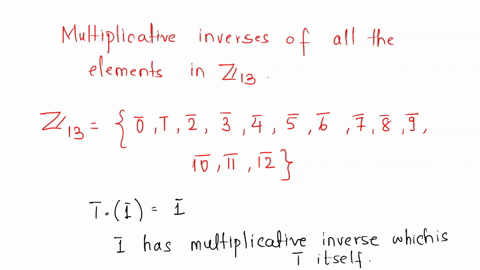 Multiplicative inverses of all the
elements in ℤ₁₃.
ℤ₁₃ = { 0̅, 1̅, 2̅, 3̅, 4̅, 5̅, 6̅, 7̅, 8̅, 9̅,
1̅0̅, 1̅1̅, 1̅2̅ }
1̅ · (1̅) = 1̅
1̅ has multiplicative inverse which is
1̅ itself.